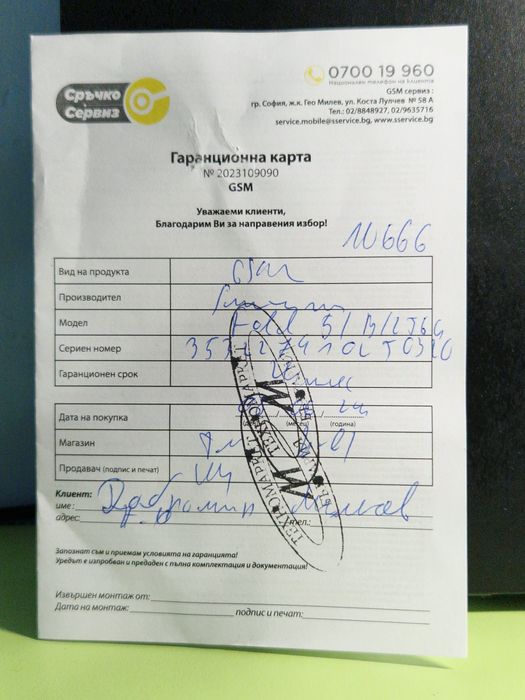 Сръчко
Сервиз
0700 19 960
Национален телефон на клиента
GSM сервиз :
гр. София, ж.к. Гео Милев, ул. Коста Лулчев № 58 А
Тел.: 02/8848927, 02/9635716
service.mobile@sservice.bg, www.sservice.bg
Гаранционна карта
№ 2023109090
GSM
Уважаеми клиенти,
Благодарим Ви за направения избор!
10666
Вид на продукта GSM
Производител
Модел Fold 5
Сериен номер
Гаранционен срок
Дата на покупка
(месец) (година)
Магазин
Продавач (подпис и печат)
ТЕХНОМАРКЕТ
Клиент:
име:
адрес: тел.:
Запознат съм и приемам условията на гаранцията!
Уредът е изпробван и предаден с пълна комплектация и документация!
Извършен монтаж от:
Дата на монтаж: подпис и печат: